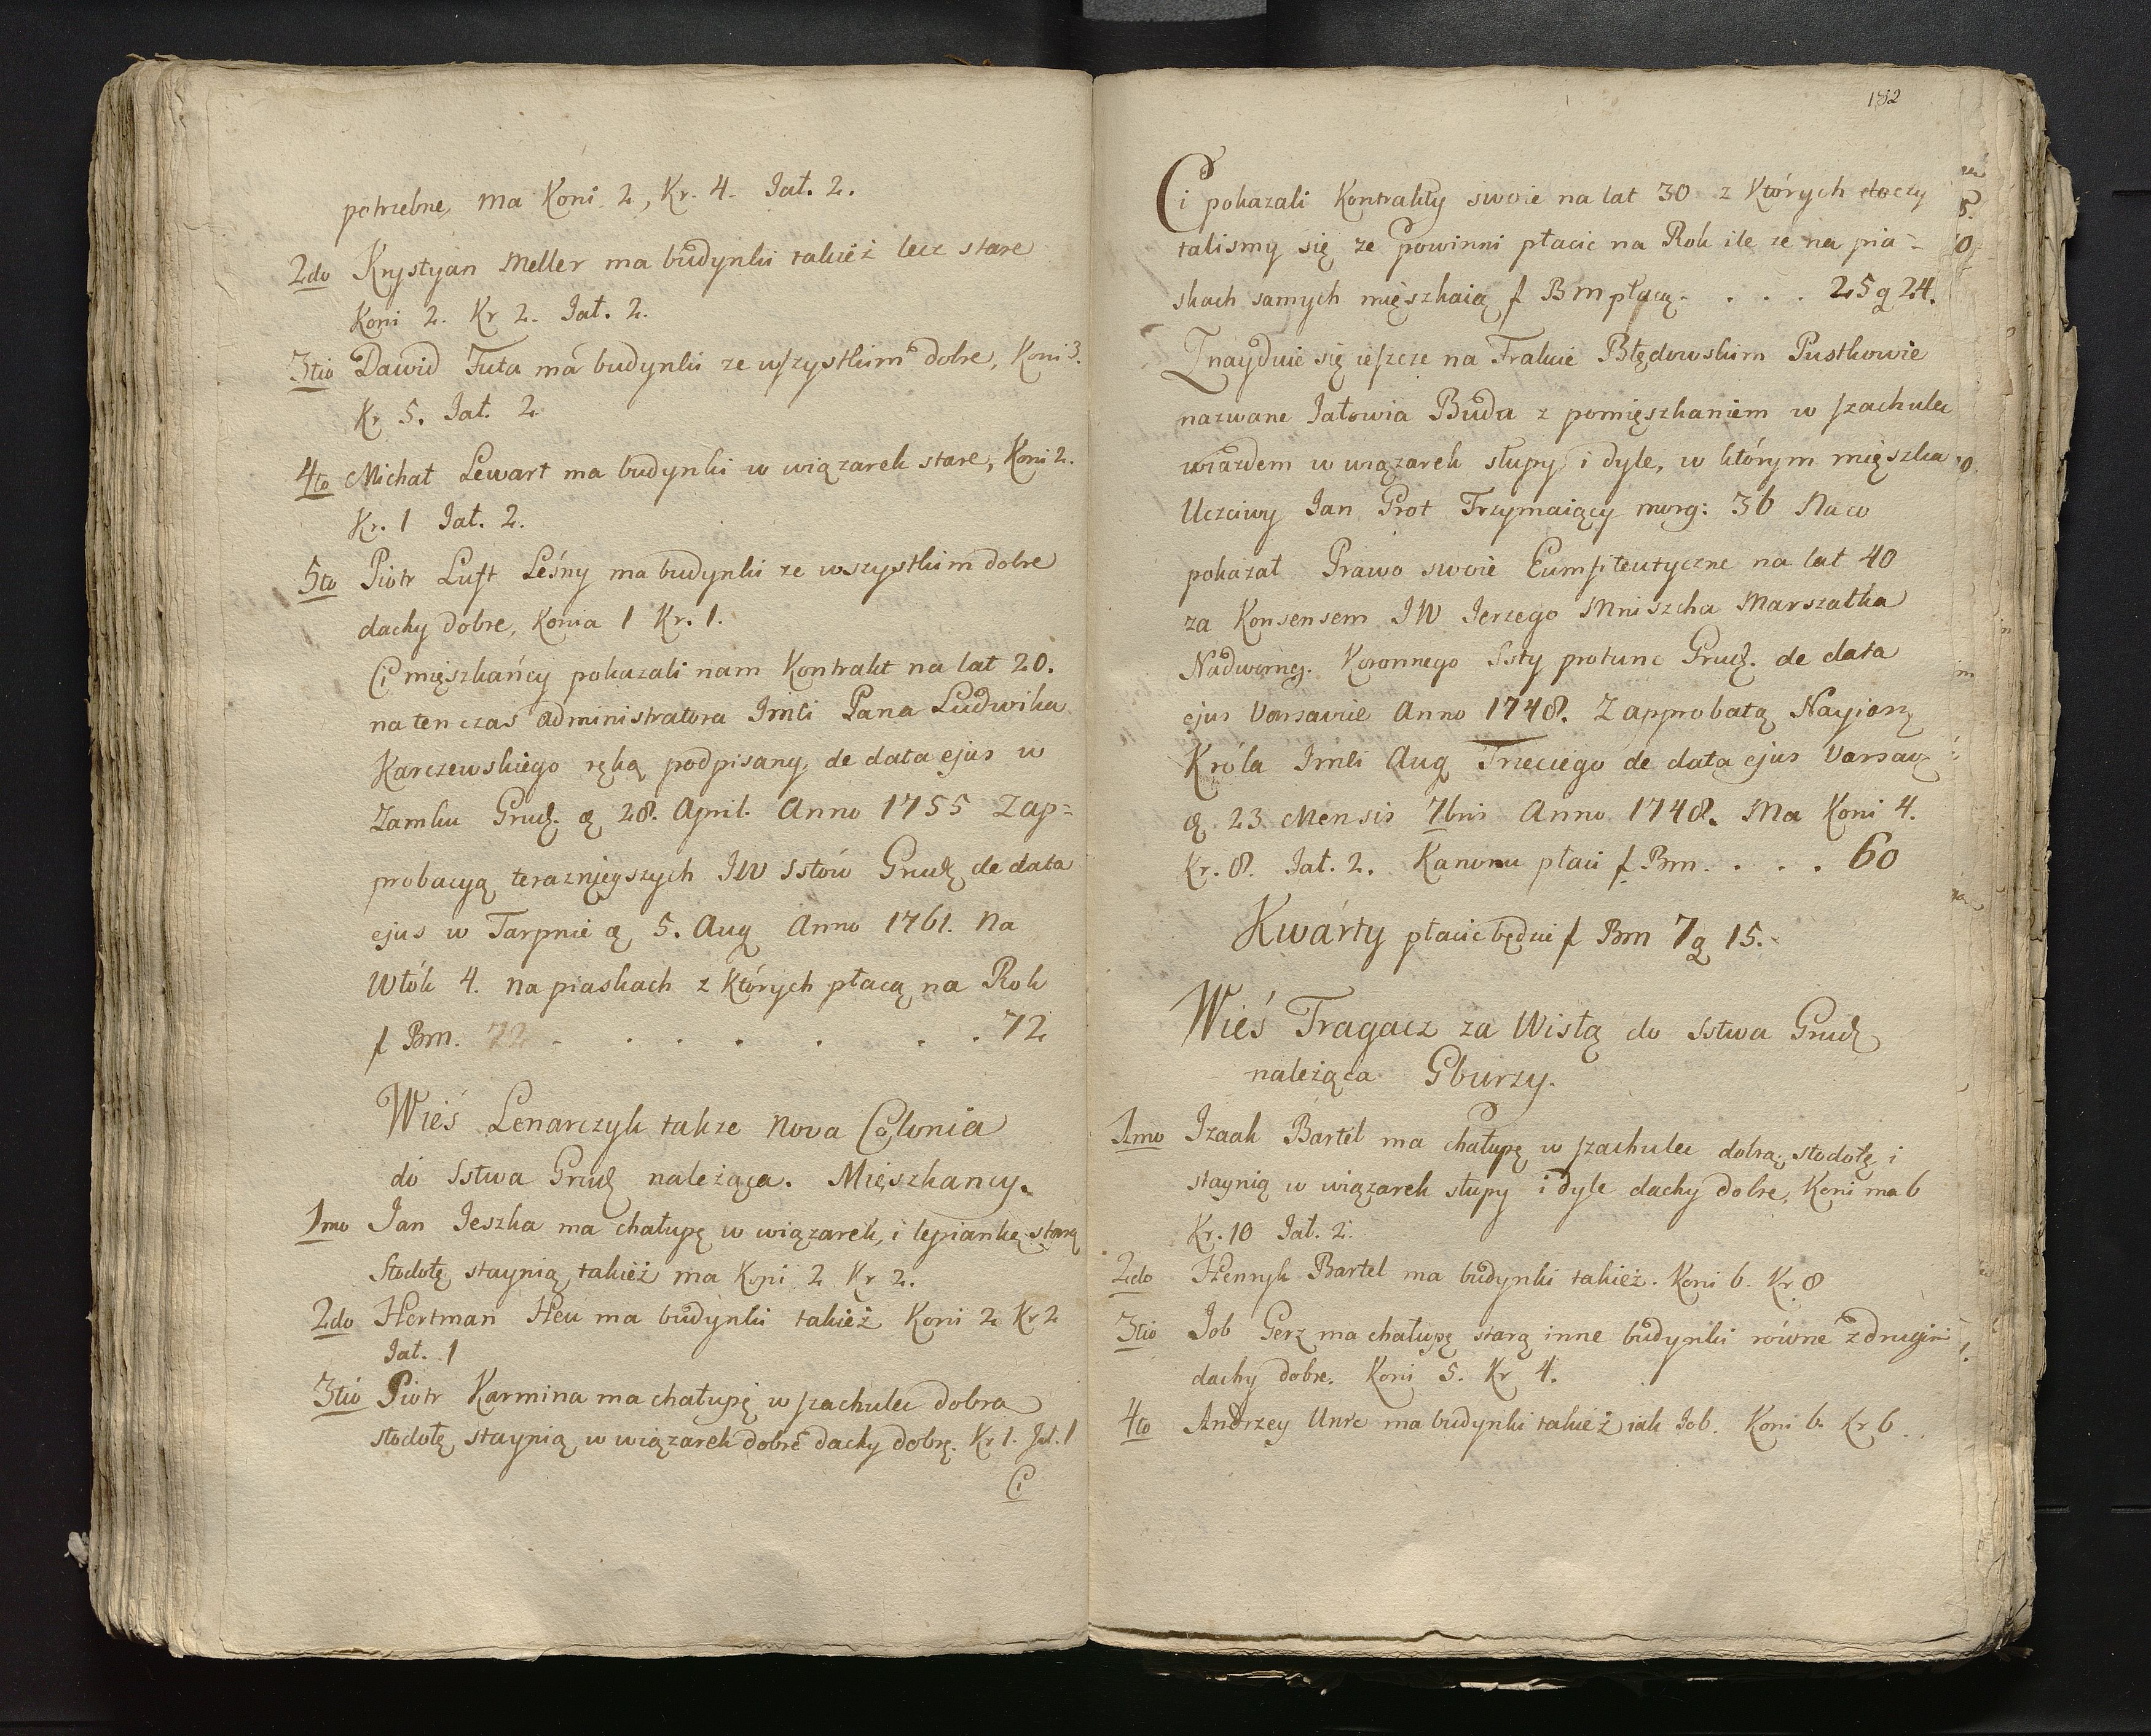 potrzebne, ma Koni 2, Kr. 4. Jał. 2.
2do Krystyan Meller ma budynki takież lecz stare
Koni 2. Kr 2. Jał. 2.
3tio Dawid Tuta ma budynki ze wszystkim dobre, Koni 3.
Kr 5. Jał. 2
4to Michał Lewart ma budynki w wiązarek stare, Koni 2.
Kr. 1 Jał. 2.
5to Piotr Luft Leśny ma budynki ze wszystkim dobre
dachy dobre, Konia 1 Kr. 1.
Ci mięszkańcy pokazali nam Kontrakt na lat 20.
na ten czas Administratora Jmći Pana Ludwika
Karczewskiego ręką podpisany, de data ejus w
Zamku Grudz. d. 28. April. Anno 1755 Zap=
probacyą teraznieyszych JW Sstów Grudz de data
ejus w Tarpnie d. 5. Aug Anno 1761. Na
Włók 4. na piaskach z Których płacą na Rok
f Brn. 72 . . . . . . . 72
Wieś Lenarczyk takze Nova Colonia
do Sstwa Grudz należąca. Mięszkancy.
1mo Jan Jeszka ma chałupę w wiązarek, i lepiankę starą
Stodołę staynią takież ma Koni 2 Kr 2.
2do Hertman Heu ma budynki takież Koni 2 Kr 2
Jał. 1
3tio Piotr Karmina ma chałupę w szachulec dobra
stodołę staynią w wiązarek dobre dachy dobrę. Kr 1. Jał. 1
Ci
182
Ci pokazali Kontrakty swoie na lat 30 z Których doczy
talismy się ze Powinni płacic na Rok ile ze na pia=
skach samych mięszkaią f Brn płacą . . . . 25 g 24.
Znayduie się ieszcze na Trakcie Błędowskim Pustkowie
nazwane Jałowia Buda z pomięszkaniem w szachulec
wiazdem w wiązarek słupy i dyle, w którym mięszka
Uczciwy Jan Prot Trzymaiący morg: 36 Na co
pokazał Prawo swoie Eumfiteutyczne na lat 40
za Konsensem JW Jerzego Mniszcha Marszałka
Nadwornęg. Koronnego Ssty protunc Grudz. de data
ejus Varsavie Anno 1748. Z approbatą Nayjasz
Króla Jmći Aug Trzeciego de data ejus Varsav
d. 23 Mensis 7bris Anno 1748. Ma Koni 4.
Kr. 8. Jał. 2. Kanonu płaci f Brn. . . . 60
Kwarty płacic będzie f Brn 7 g 15.
Wieś Tragacz za Wisłą do Sstwa Grudz
należąca Gburzy.
1mo Izaak Bartel ma chałupę w szachulec dobrą, stodołę i
staynią w wiązarek słupy i dyle dachy dobre, Koni ma 6
Kr. 10 Jał. 2.
2do Hennyk Bartel ma budynki takież. Koni 6. Kr. 8
3tio Job Gerz ma chałupę starą inne budynki równe z drugimi
dachy dobre. Koni 5. Kr 4.
4to Andrzey Unrc ma budynki takież iak Job. Koni 6. Kr 6